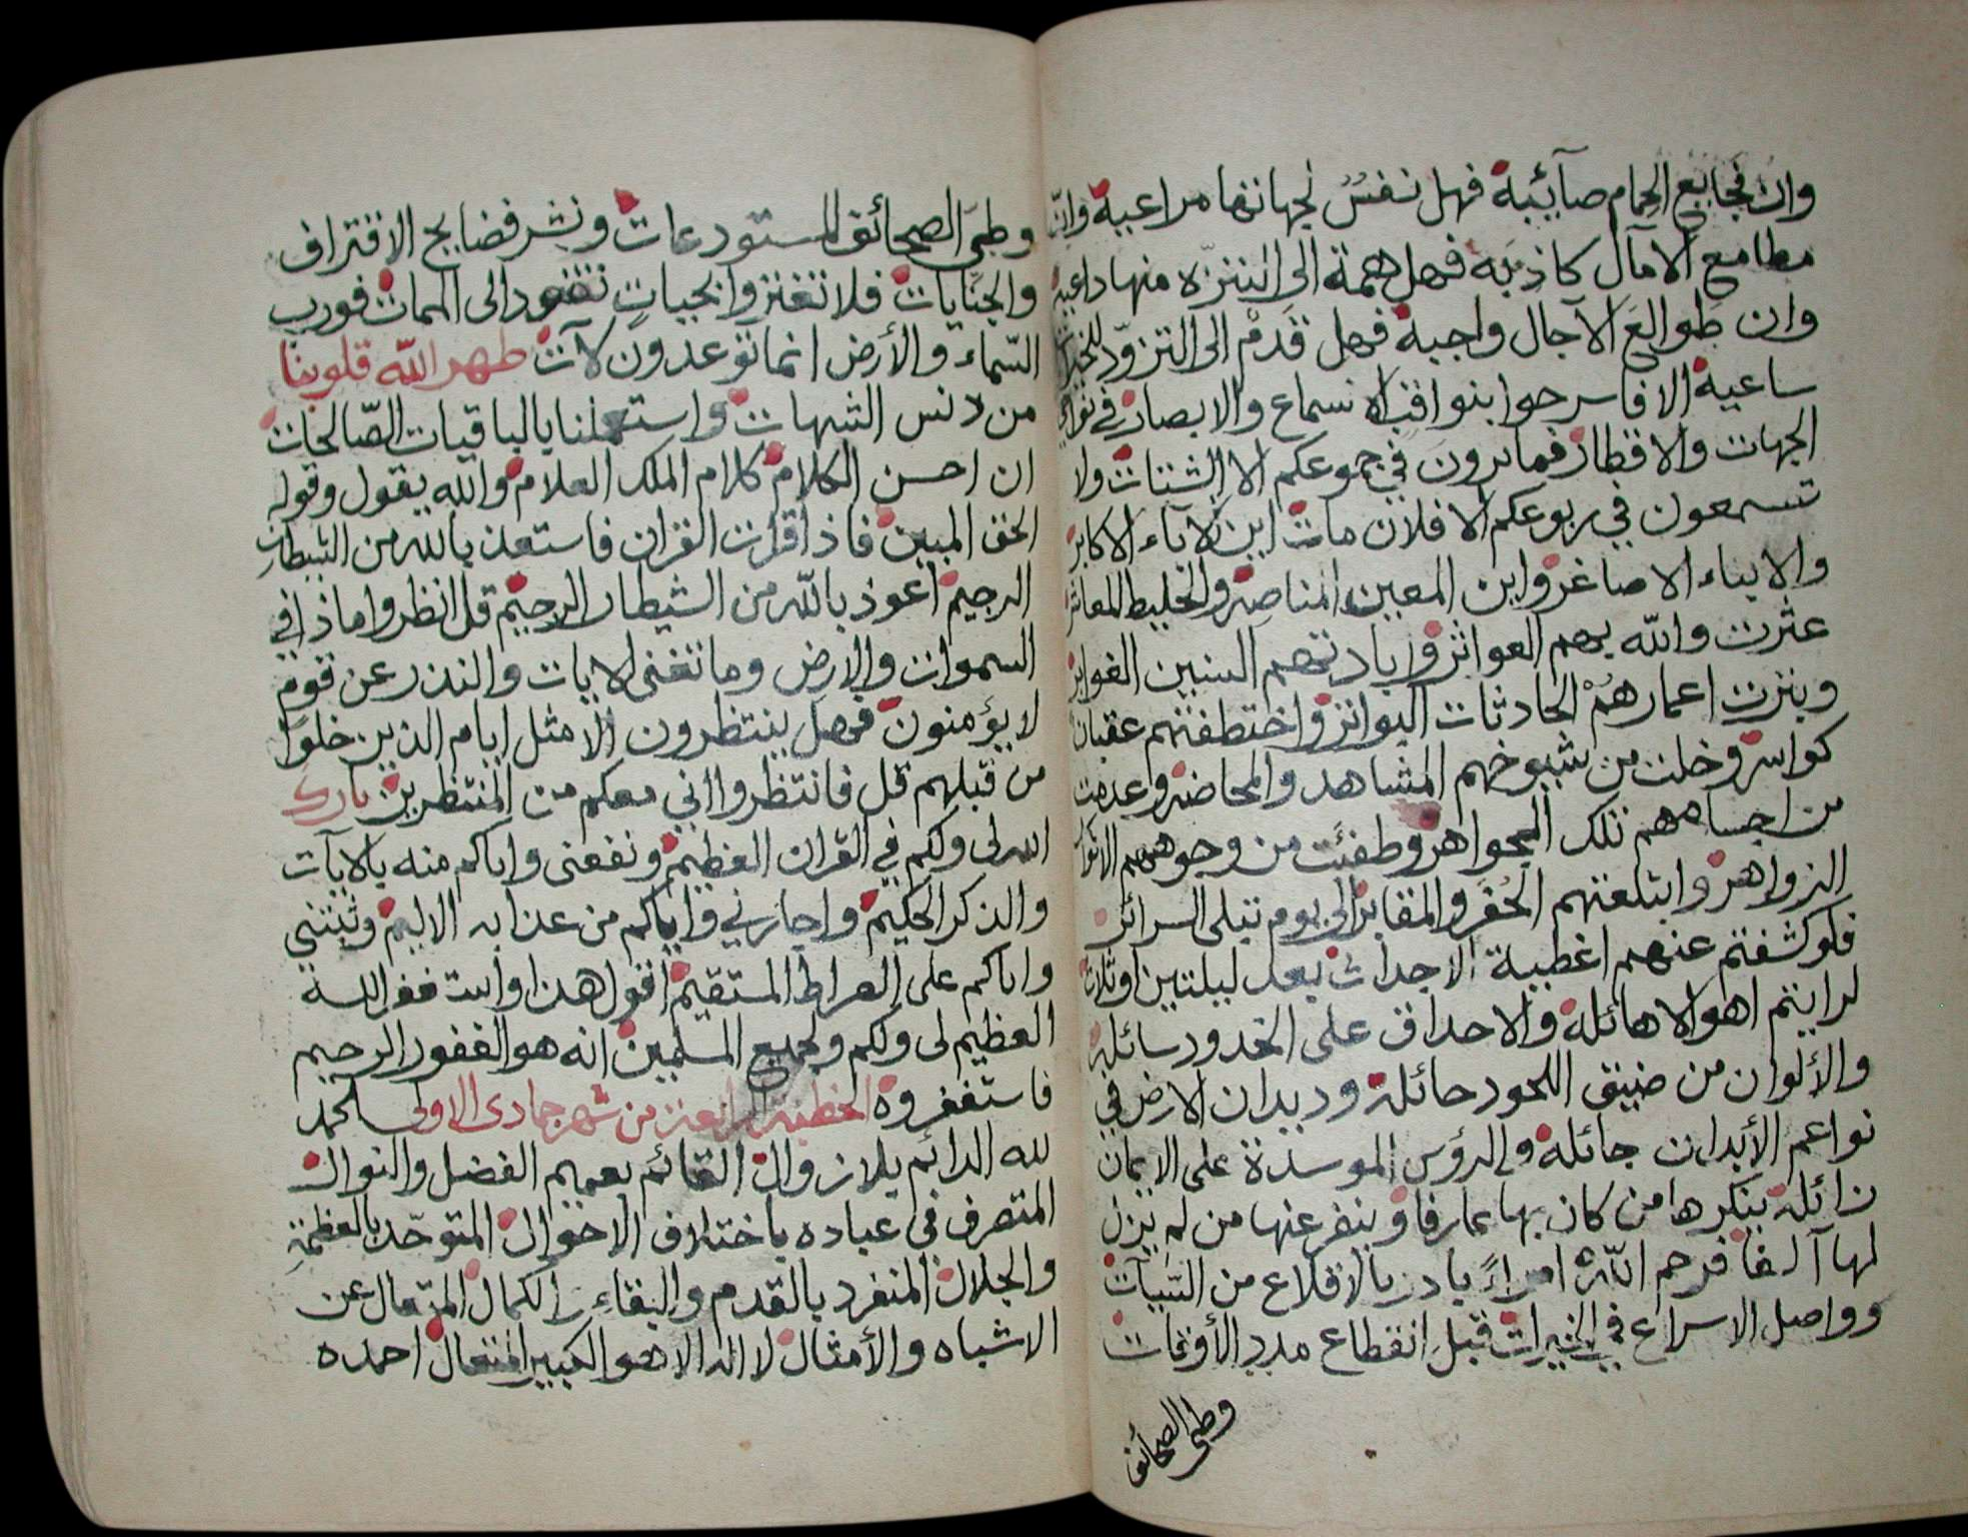 وان فجايع الحمام صآئبة فهل نفسٌ لجهاتها مراعية وانّ
مطامع الامآل كاذبَه فهل همة الى التنزّه منها داعية
وان طَوالعَ الآجال واجبة فهل قَدمْ الى التزوّد
ساعية الا فاسرحوا بنواقب الاسماع والابصار في نواحي
الجهات والاقطار فما ترون في جموعكم الا الشتات ولا
تسمعون في ربوعكم الا فلان مات اين الاباء الاكابر
والابناء الاصاغر واين المعين المناصر والخليط المعاشر
عثرت والله بهم العواثر وابادتهم السنين الغوابر
وبترت اعمارهُمْ الحادثات البواتر واختطفتهم عقبان
كواسر وخلت من شيوخهم المشاهد والمحاضر وعدمت
من اجسامهم تلك الجواهر وطفئت من وجوههم الانوار
الزواهر وابتلعتهم الحُفَر والمقابر الى يوم تبلى السرائر
فلو كشفتم عنهم اغطية الاجداث بعد ليلتين او ثلاث
لرايتم اهوالا هائلة والاحداق على الخدود سائلة
والألوان من ضيق اللحود حائلة وديدان الارض في
نواعم الأبدان جائلة والرؤس الموسدة على الايمان
زائلة ينكرها من كان بها عارفا وينفر عنها من لم يزل
لها آلفا فرحم اللّه امراءً بادر بالاقلاع من السّيآت
وواصل الاسراع في الخيرات قبل انقطاع مدد الأوقات
وطى الصحائف
وطيّ الصحائف المستودعات ونشر فضايح الاقتراف
والجنايات فلا تغتروا بحياتٍ تقود الى الممات فورب
السّماء والأرض انما توعدون لآت طهر اللّه قلوبنا
من دنس الشبهات واستعملنا بالباقيات الصّالحات
ان احسن الكلام كلام الملك العلام والله يقول وقوله
الحق المبين فاذا قرات القران فاستعذ بالله من الشيطان
الرجيم اعوذ باللّه من الشيطان الرجيم قل انظروا ماذا في
السموات والارض وما تغنى الايات والنذر عن قوم
لا يؤمنون فهل ينتظرون الا مثل ايام الذين خلوا
من قبلهم قل فانتظروا اني معكم من المنتظرين بارك
الله لى ولكم في القران العظيم ونفعنى واياكم منه بالايآت
والذكر الحكيم واجارني واياكم من عذابه الاليم وثبتني
واياكم على الصراط المستقيم اقول هذا واستغفر الله
العظيم لى ولكم ولجميع المسلمين انه هو الغفور الرحيم
فاستغفروه الخطبة الرابعة من شهر جمادى الاولى الحمد
لله الدائم بلا زوال القائم بعميم الفضل والنوال
المتصرف في عباده باختلاف الاحوال المتوحّد بالعظمة
والجلال المنفرد بالقدم والبقاء والكمال المتعال عن
الاشباه والأمثال لا اله الا هو الكبير المتعال احمده